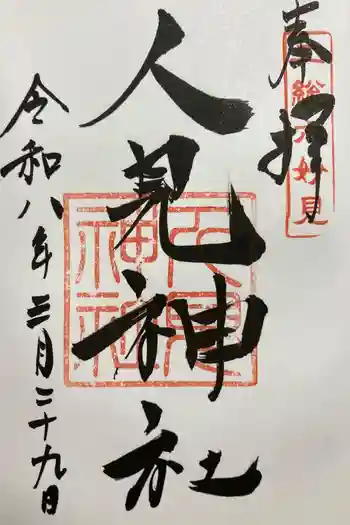 奉拝
人見神社
令和八年三月二十九日
人見
神社